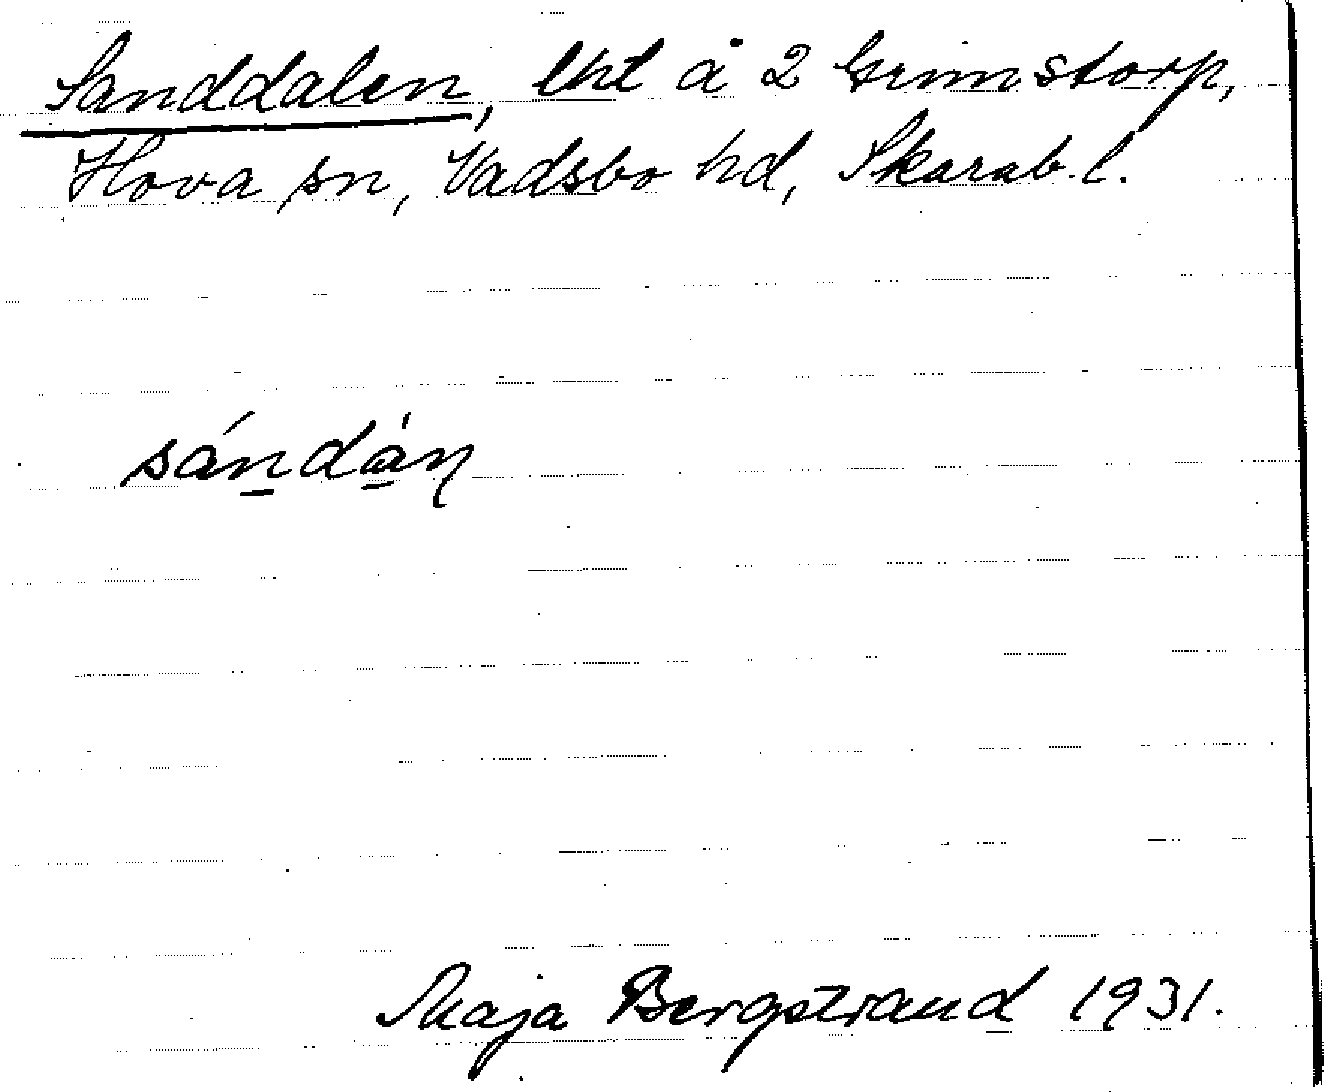 Sanddalen, lht å 2 Grimstorp,
Hova sn, Vadsbo hd, Skarab. l.
sán̠dá̠ɳ
Maja Bergstrand 1931.